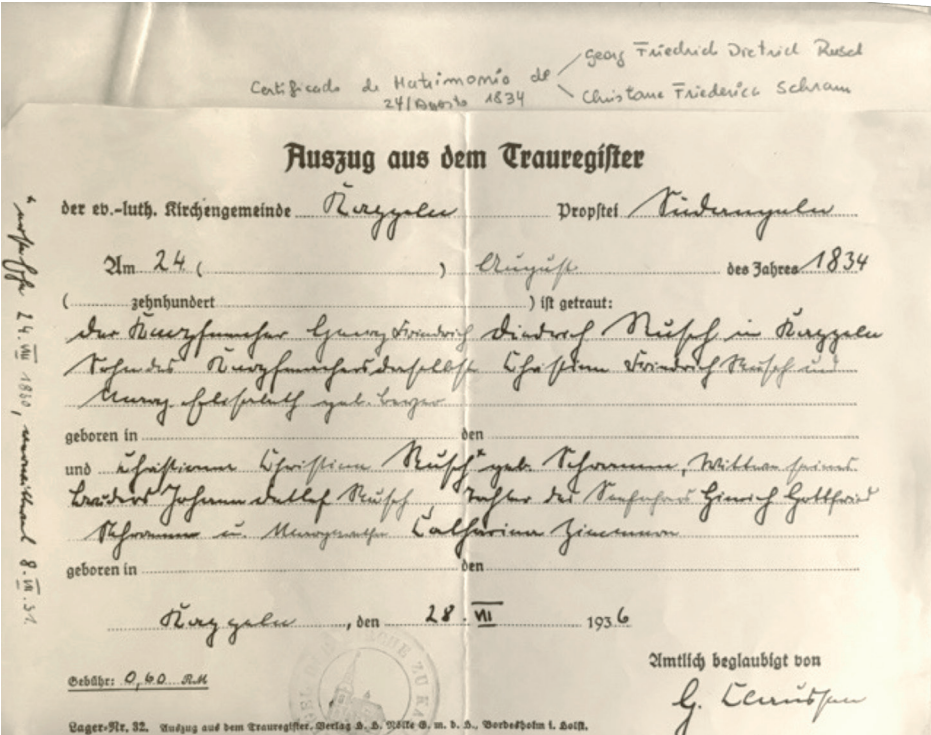 Certificado de Matrimonio de
24/Agosto 1834
Georg Friedrich Dietrich Rusch
Christane Friederica Schramm
Auszug aus dem Trauregister
der ev.-luth. Kirchengemeinde Kappeln Propstei Südangeln
Am 24. ( ) August des Jahres 1834
( zehnhundert ) ist getraut:
der Knopfmacher Georg Friedrich Diederich Rusch in Kappeln
Sohn des Knopfmachers daselbst Christian Friedrich Rusch und
Marg. Elisabeth geb.
geboren in den
und Christiane Christina Rusch* geb. Schramm, Witwe seines
Bruders Johann Detlef Rusch, Tochter des Hinrich Gottfried
Schramm u. Margaretha Catharina
geboren in den
Kappeln, den 28. VII 1936
Amtlich beglaubigt von
G. Claussen
Gebühr: 0,60 RM
Lager-Nr. 32. Auszug aus dem Trauregister. Verlag H. H. Nölke G. m. b. H., Bordesholm i. Holst.
* 24. VII 1830, 8. VII. 31.
KIRCHE ZU KA